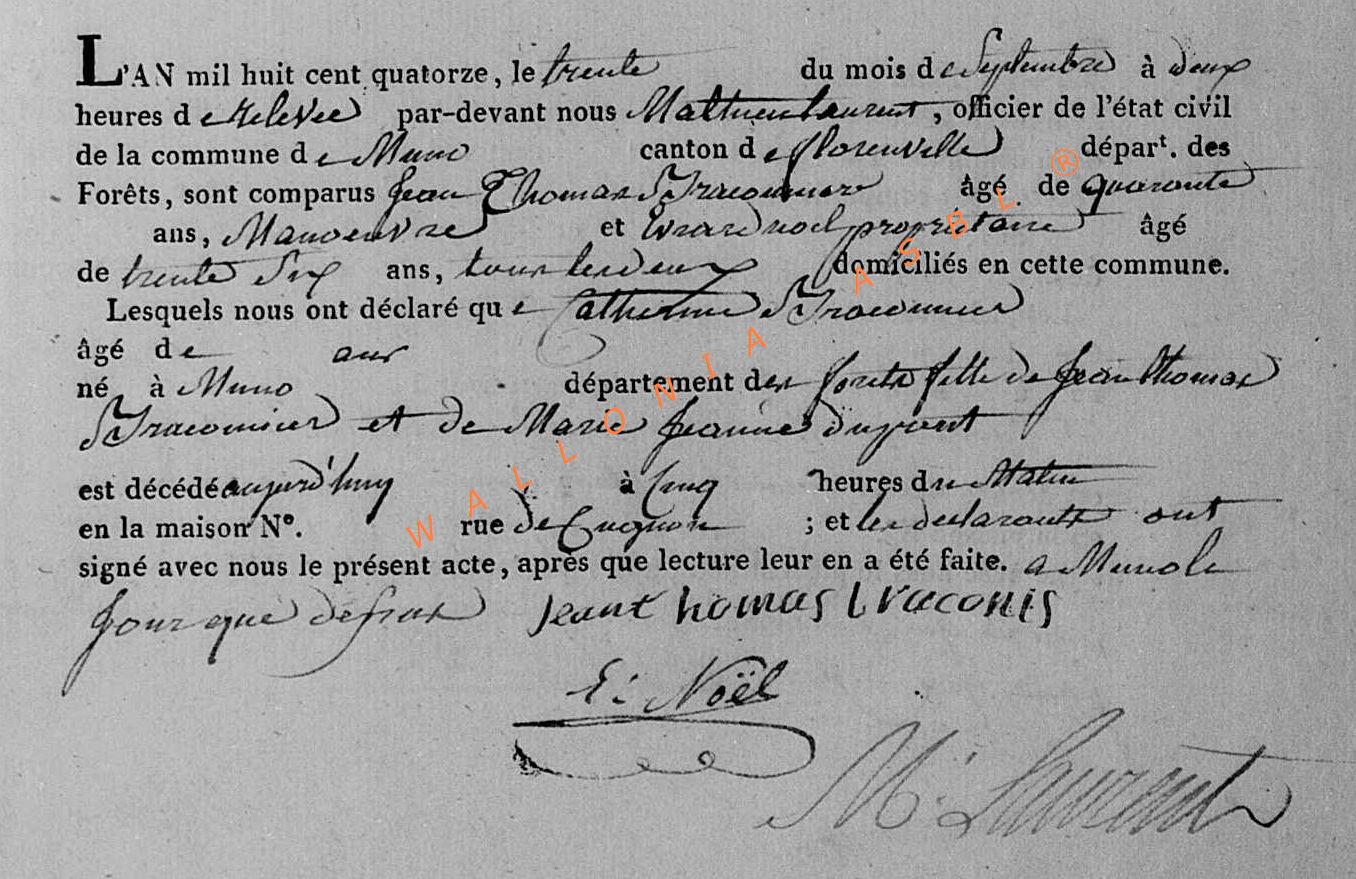 L'AN mil huit cent quatorze, le trente du mois de Septembre à deux
heures de Relevée par-devant nous Mathieu Laurent, officier de l'état civil
de la commune de Muno canton de florenville épart. des
Forêts, sont comparus Jean Thomas Straconnier âgé de quarante
ans, Manoeuvre et Evrard noel propriétaire âgé
de trente Six ans, tous les deux domiciliés en cette commune.
Lesquels nous ont déclaré que Catherine Straconnier
âgé de ans
né à Muno département des forets fille de Jean Thomas
Straconnier et de Marie Jeanne dupont
est décédé aujourd'huy à Cinq heures du Matin
en la maison N°. rue de Cugnon ; et les declarants ont
signé avec nous le présent acte, après que lecture leur en a été faite. a Muno le
Jour que dessus Jeant homas
E: Noël
M: Laurent
WALLONIA ASBL ®